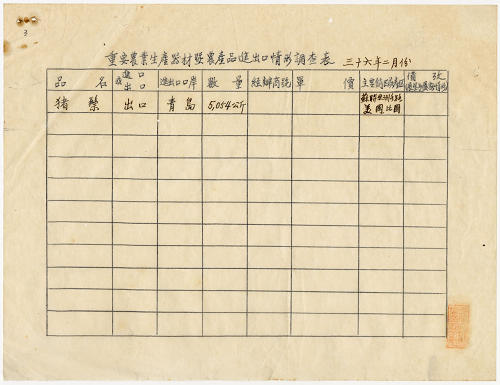 3
重要農業生產器材暨農產品進出口情形調查表 三十六年二月份
品名 進口或出口 進出口岸 數量 經辦商號 單價 主要銷
豬鬃 出口 青島 5,054公斤
美國